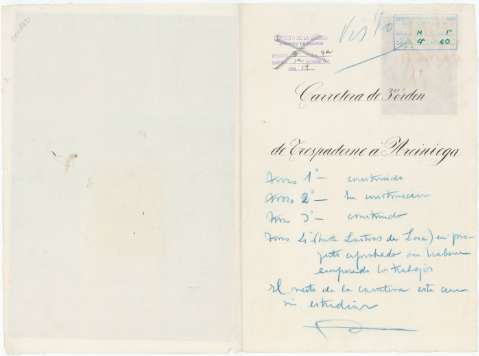 Visto
Carretera de 3er órden
de Trespaderne á Arciniega
Trozo 1º — construido
Trozo 2º — En construccion
Trozo 3º — construido
Trozo 4º (hasta Lastras de Losa) en pro-
yecto aprobado sin haberse
empezado los trabajos
El resto de la carretera esta aun
sin estudiar